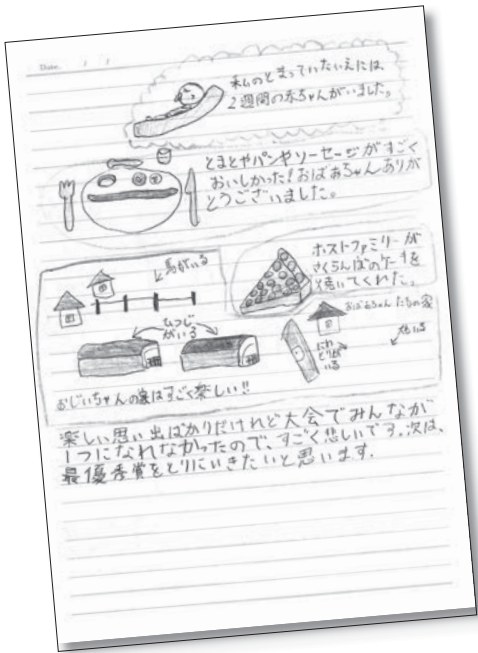 Date　/　/
私のとまっていたいえには、
2週間の赤ちゃんがいました。
とまとやパンやソーセージがすごく
おいしかった!おばあちゃんありが
とうございました。
馬がいる
ホストファミリーが
さくらんぼのケーキを
焼いてくれた。
おばあちゃんたちの家
ひつじ
がいる
にわ
とりが
いる
おじいちゃんの家はすごく楽しい!!
楽しい思い出ばかりだけれど大会でみんなが
1つになれなかったので、すごく悲しいです。次は、
最優秀賞をとりにいきたいと思います。